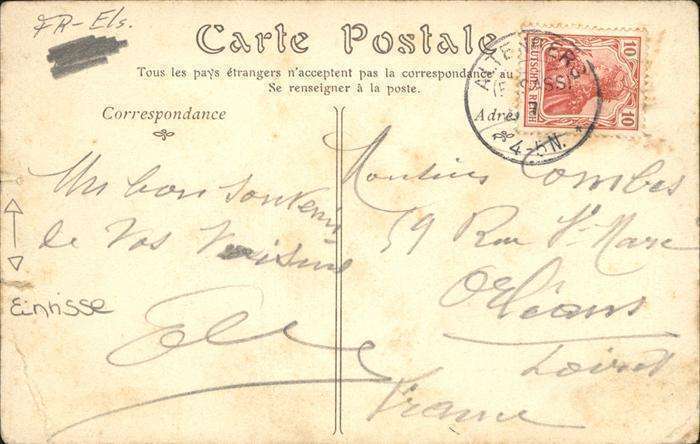 FR-Els.
Carte Postale
Tous les pays étrangers n'acceptent pas la correspondance au
Se renseigner à la poste.
Correspondance
Adres
10 10
DEUTSCHES REICH
4-5N.
Un bon souvenir
de Vos Voisins
Combes
59 Rue St Marc
Orléans
Loiret
France
Einrisse